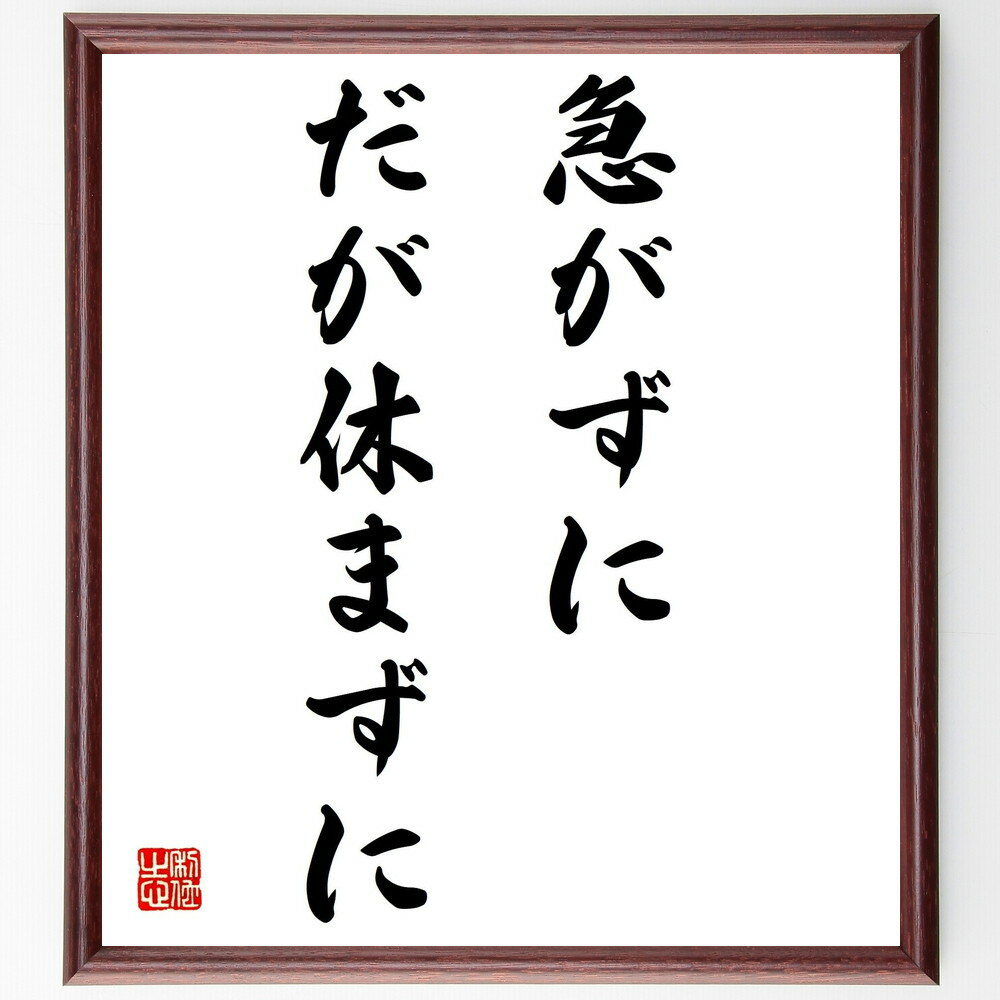 急がずに
だが休まずに